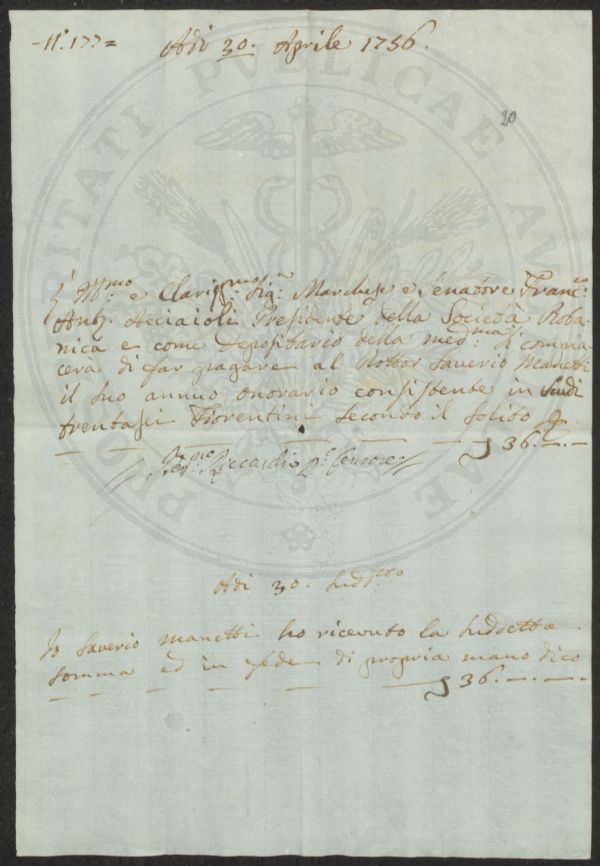 N.° 177=
Adì 30. Aprile 1756.
20
L' Ill.mo e Claris.mo Sig.r Marchese e Senatore Franc.o
Ant.o Acciaioli Presidente della Società Bota-
nica e come Depositario della med.ma si compia-
cerà di far pagare al Dottor Saverio Manetti
il suo annuo onorario consistente in Scudi
trentasei Fiorentini secondo il solito
36.
Riccardi P.o Censore
Adì 30. sudd.tto
Io Saverio Manetti ho ricevuto la suddetta
somma ed in fede di propria mano dico
36.
PROSPERITATI PVBLICAE AV
AE